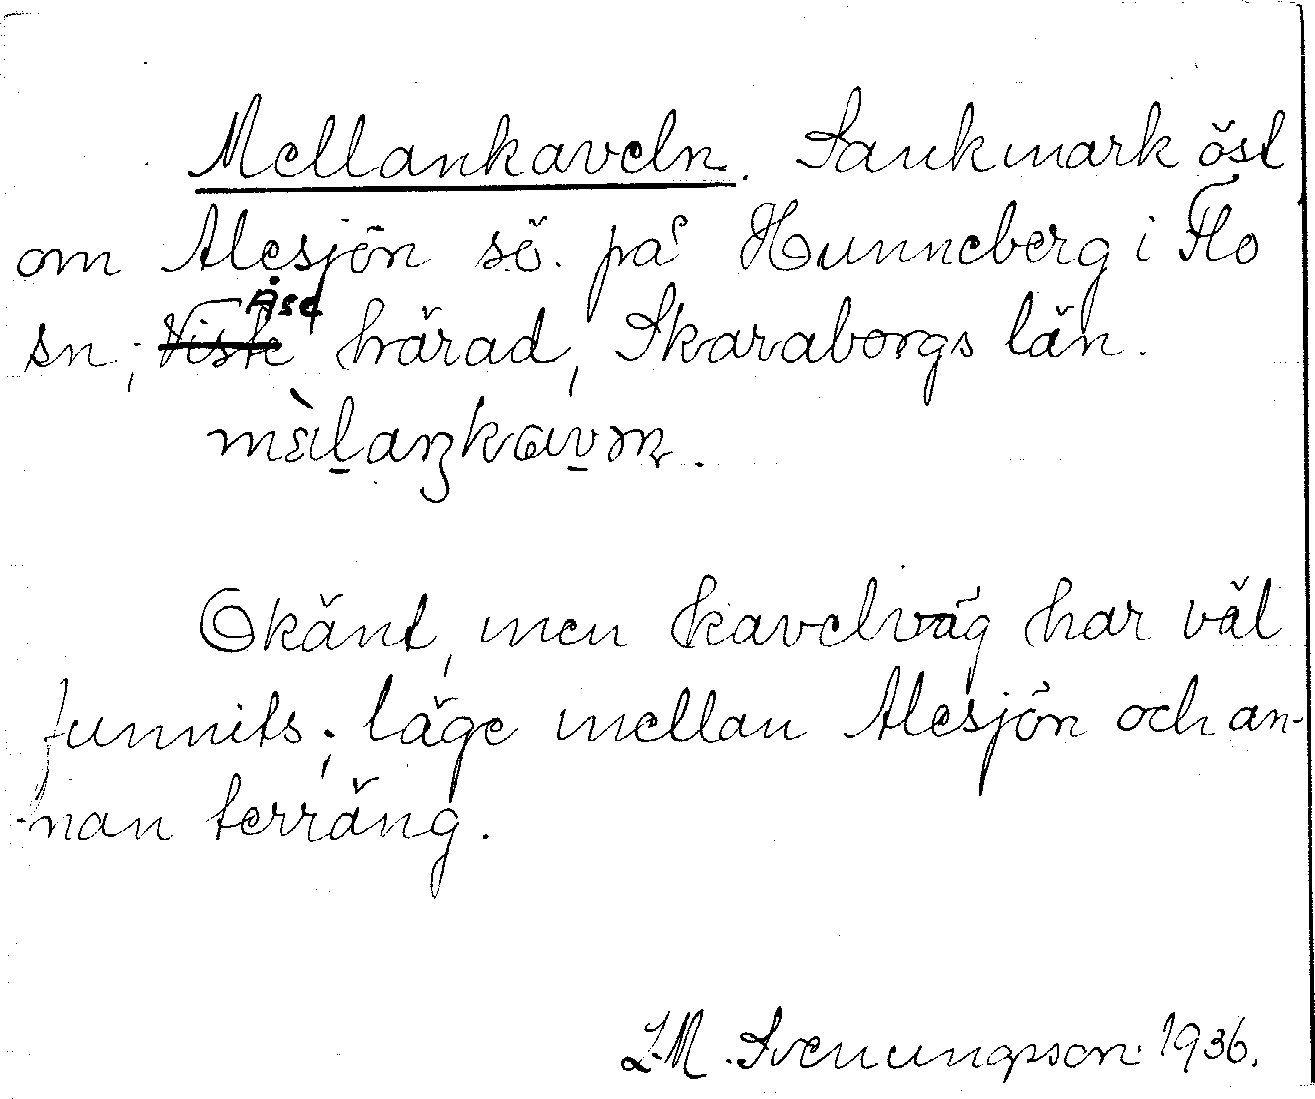 Mellankaveln. Sankmark öst
om Alesjön sö. på Hunneberg i Flo
sn; Viste Åse härad, Skaraborgs län.
Okänt, men kavelväg har väl
funnits; läge mellan Alesjön och an-
nan terräng.
L.M. Svenungsson. 1936.